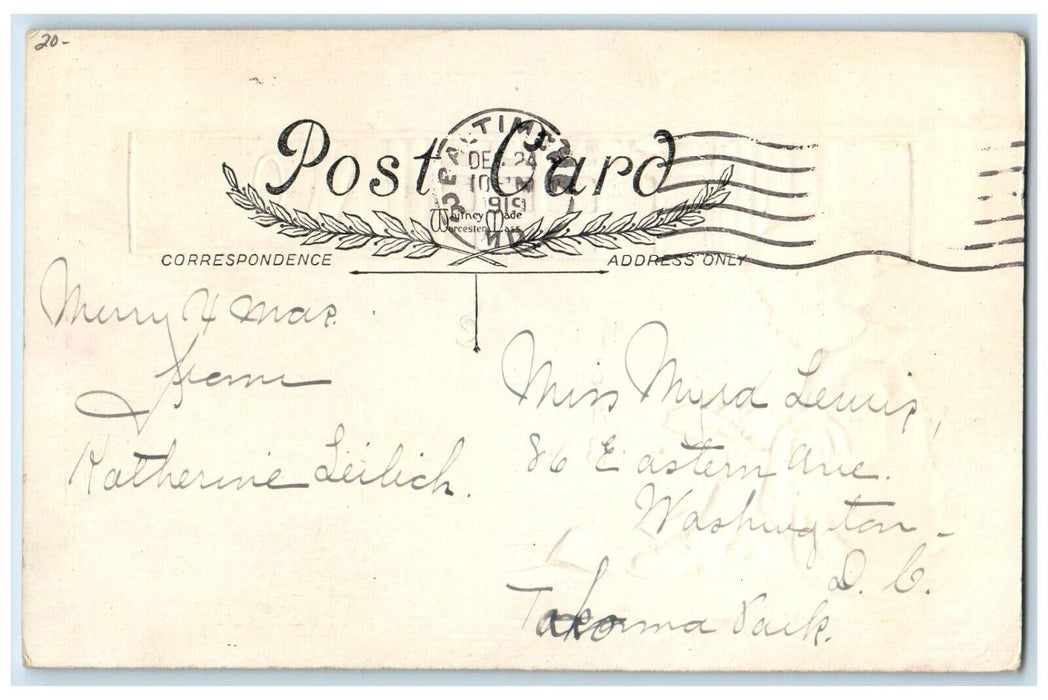 20-
Post Card
BALTIMORE
DEC 24
10
1919
MD
Whitney Made
Worcester, Mass.
CORRESPONDENCE
ADDRESS ONLY
Merry Xmas
from
Katherine Leilich.
Miss Myra Lewis,
86 Eastern Ave.
Washington -
D. C.
Takoma Park.